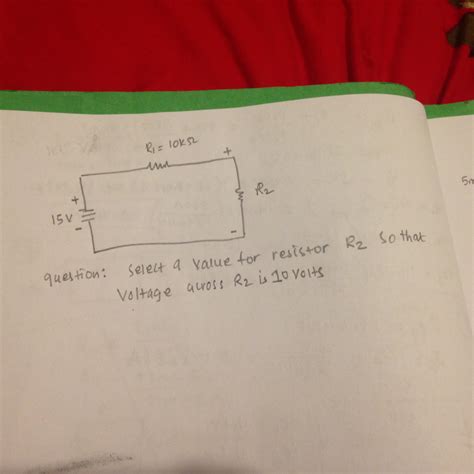 R1 = 10KΩ
+
+
R2
5m
15V
-
-
question: select a value for resistor R2 so that
voltage across R2 is 10 volts